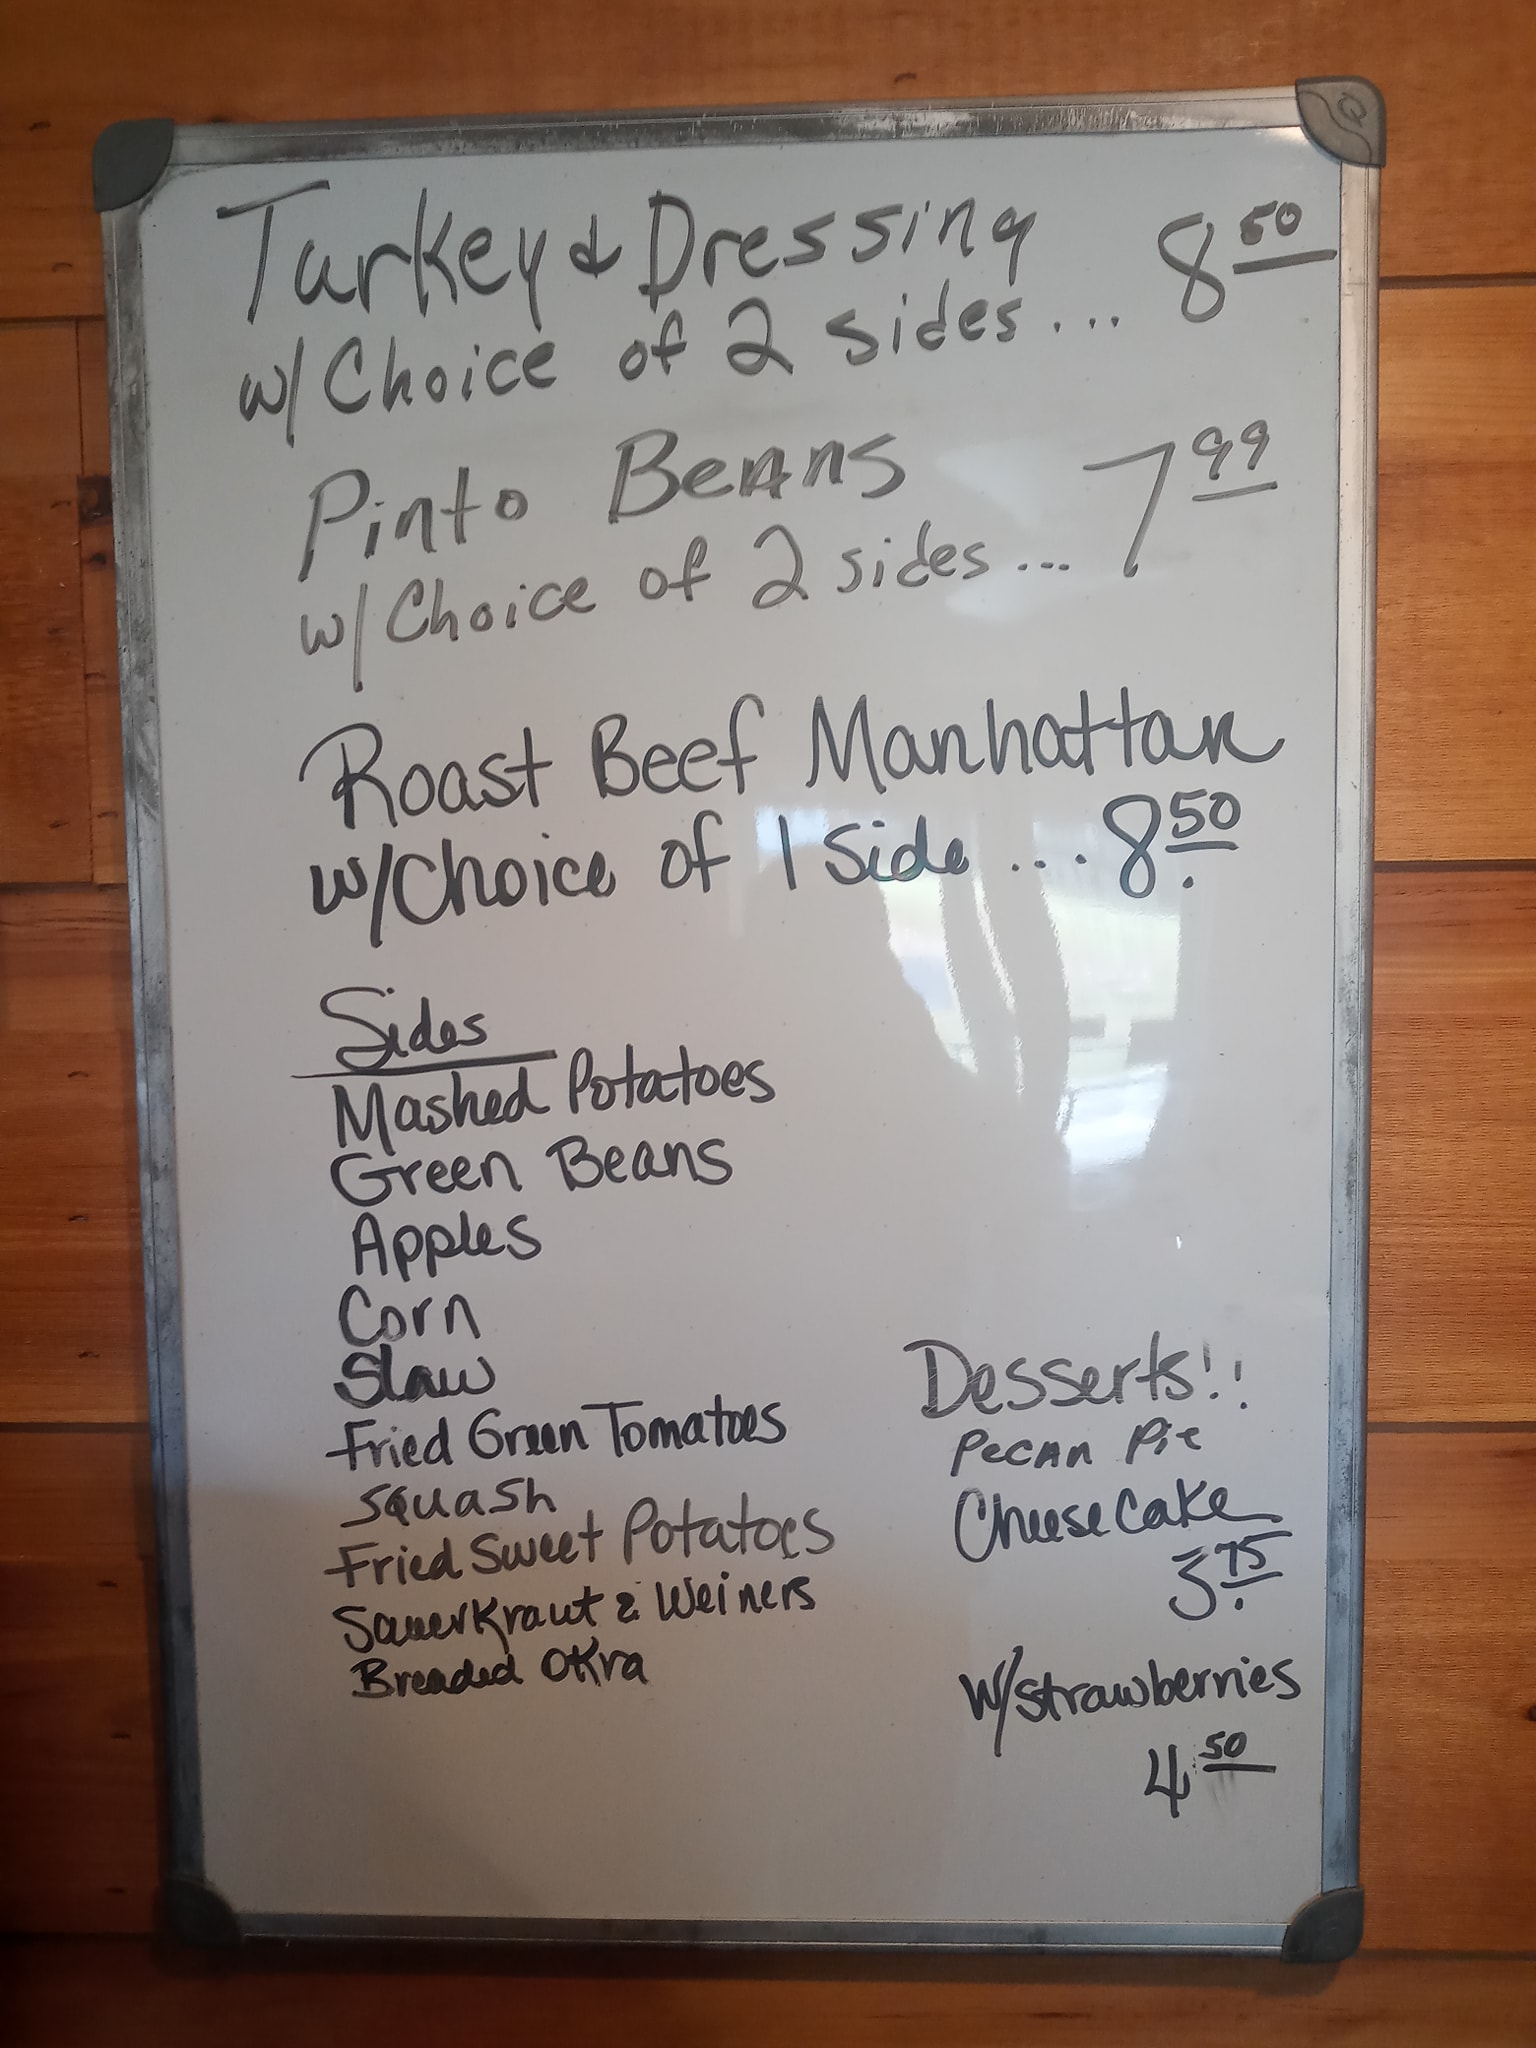 Turkey & Dressing 8 50
w/ Choice of 2 sides ...
Pinto Beans 7 99
w/ Choice of 2 sides ...
Roast Beef Manhattan
w/ Choice of 1 Side ... 8 50
Sides
Mashed Potatoes
Green Beans
Apples
Corn
Slaw
Fried Green Tomatoes
Squash
Fried Sweet Potatoes
Sauerkraut & Weiners
Breaded Okra
Desserts!!
Pecan Pie
Cheese Cake
3.75
w/ strawberries
4.50